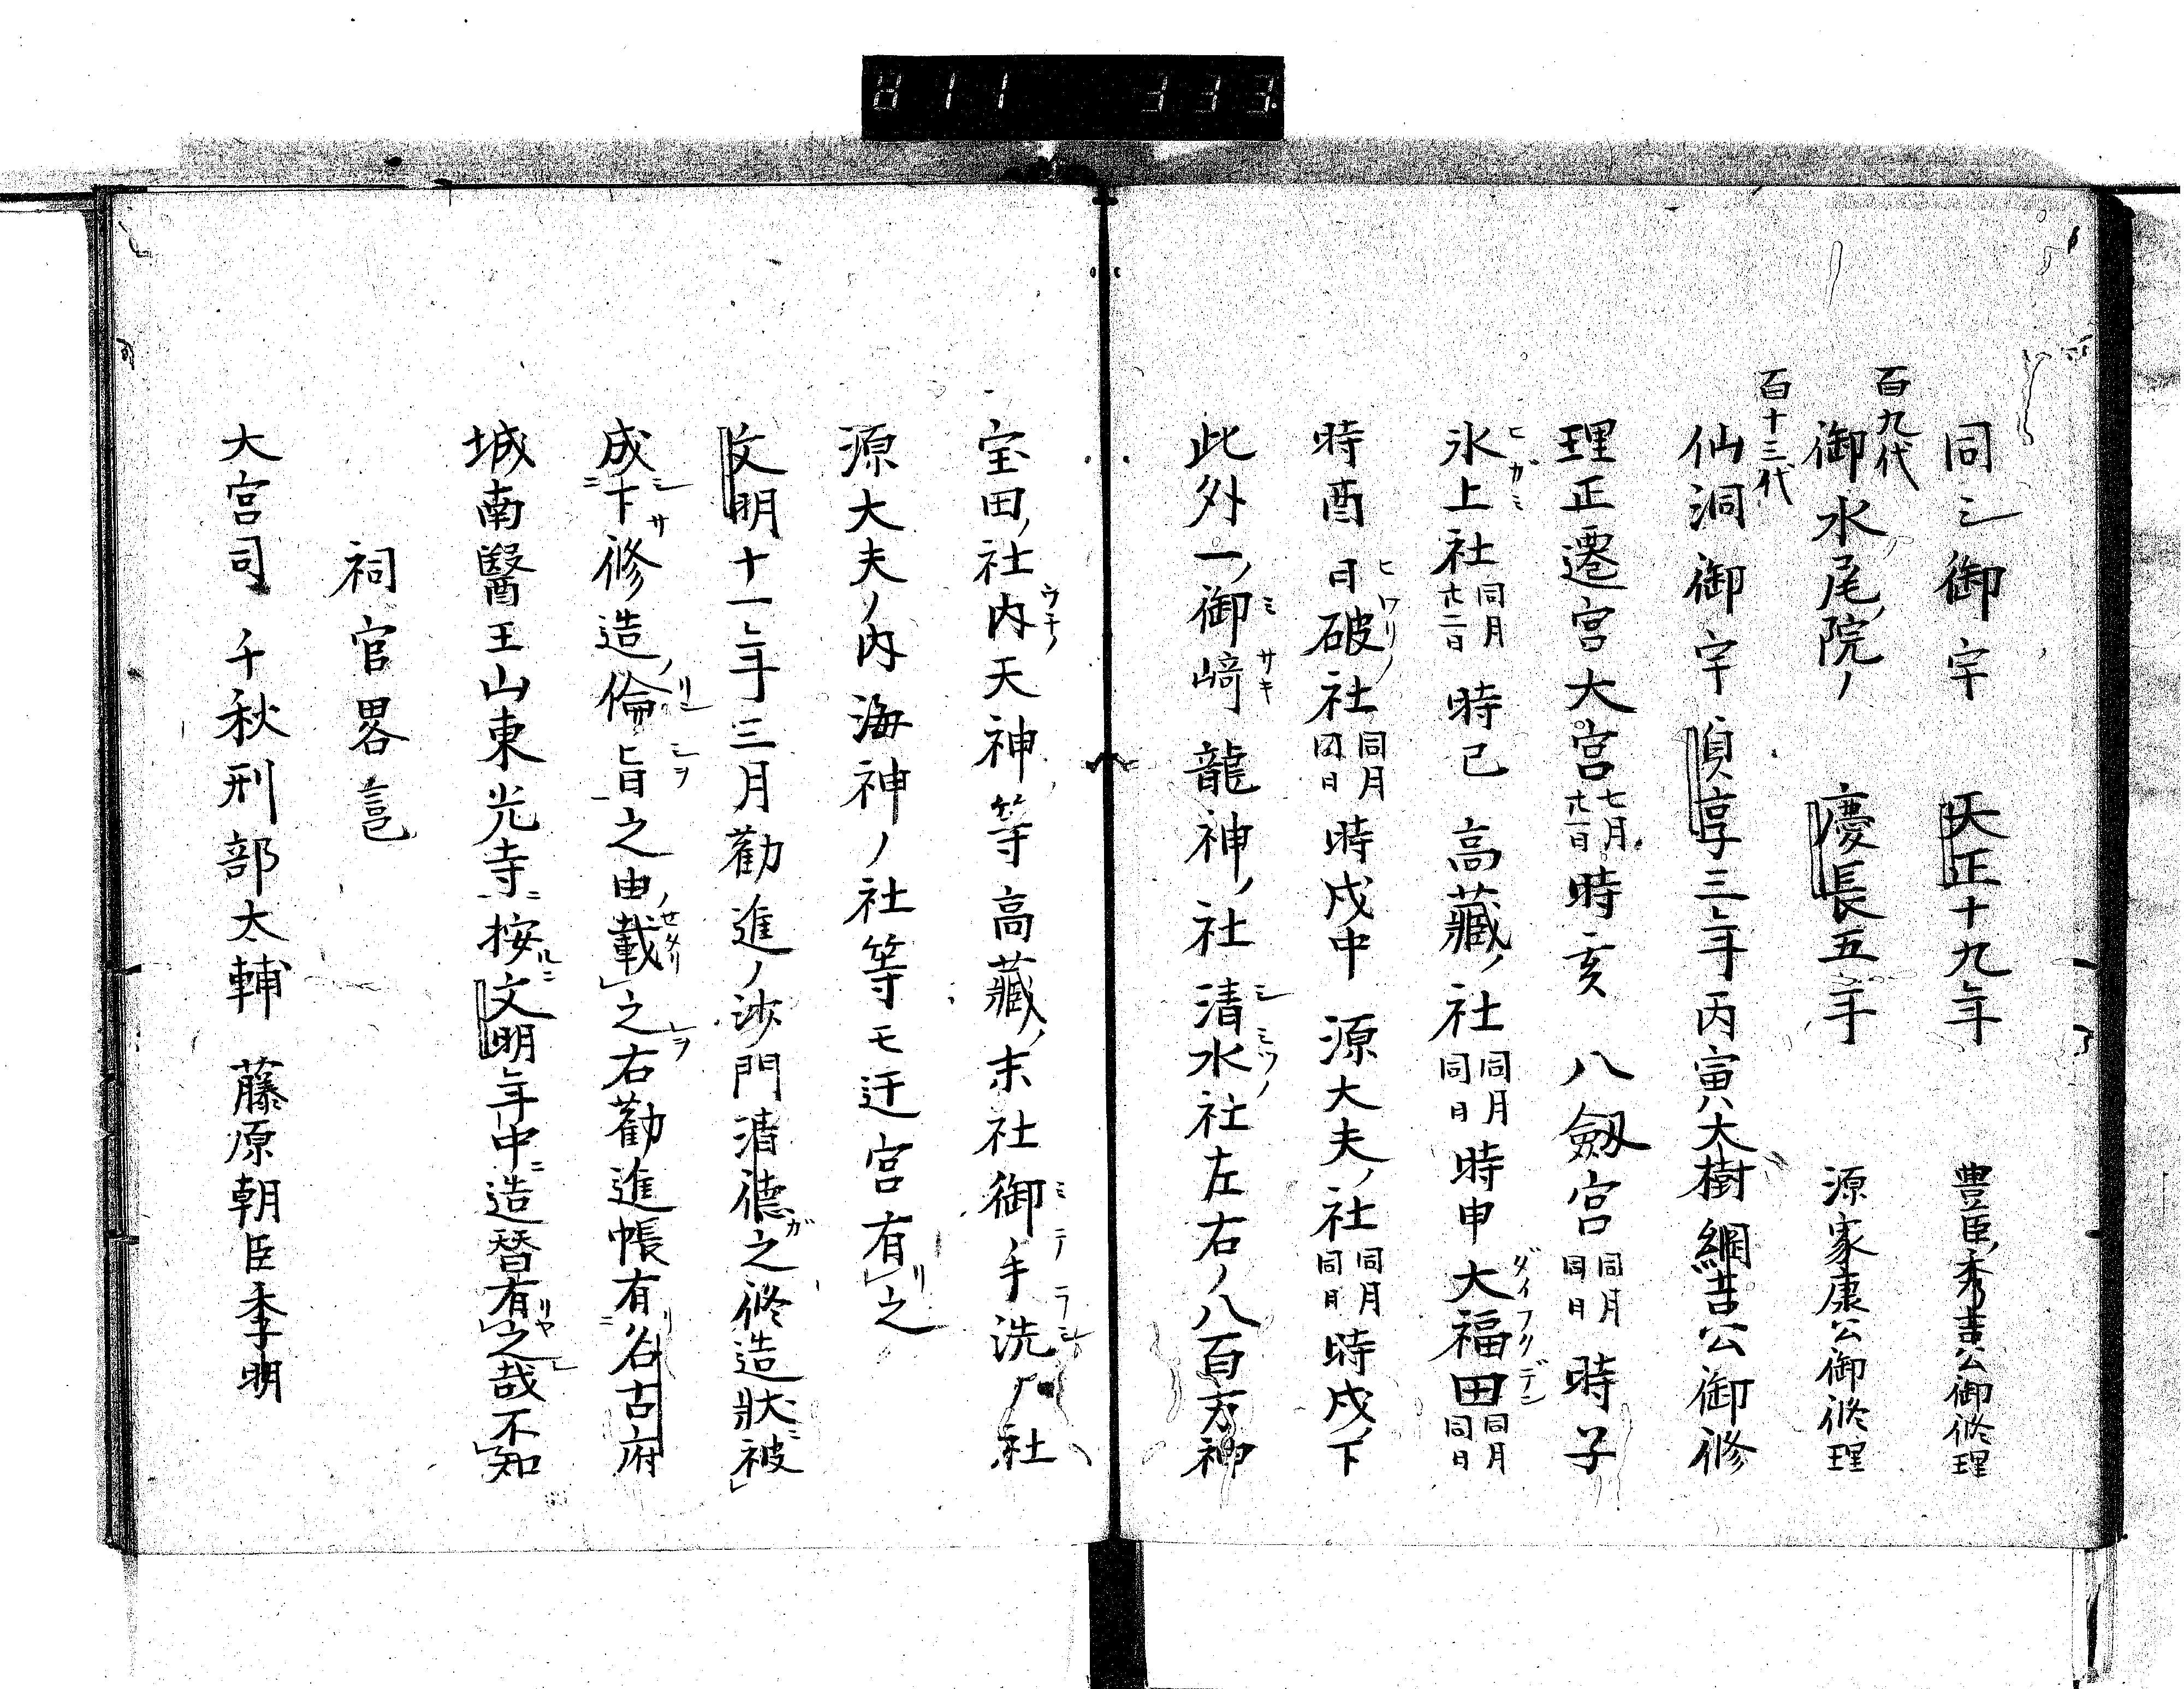 811 333.
同シ御宇 天正十九年 豊臣ノ秀吉公御修理
百九代
御水尾ノ院ノ 慶長五年 源家康公御修理
百十三代
仙洞御宇 貞享三年丙寅大樹綱吉公御修
理正遷宮大宮七月廿一日時亥 八劔宮同月同日時子
氷上社同月廿二日時巳 高藏ノ社同月同日時申大福田同月同日
時酉 日破社同月四日時戌中 源大夫ノ社同月同日時戌ノ下
此外一ノ御﨑龍神ノ社清水社左右ノ八百万神
宝田ノ社内天神等高藏ノ末社御手洗社
源大夫ノ内海神ノ社等モ迁宮有リ之
文明十一年三月勸進ノ沙門清德ガ之修造狀ニ被
成下修造ノ倫旨之由載之右勸進帳有名古府
城南醫王山東光寺ニ按ルニ文明年中ニ造替有リヤ之哉不知
祠官畧
大宮司 千秋刑部太輔 藤原朝臣季明